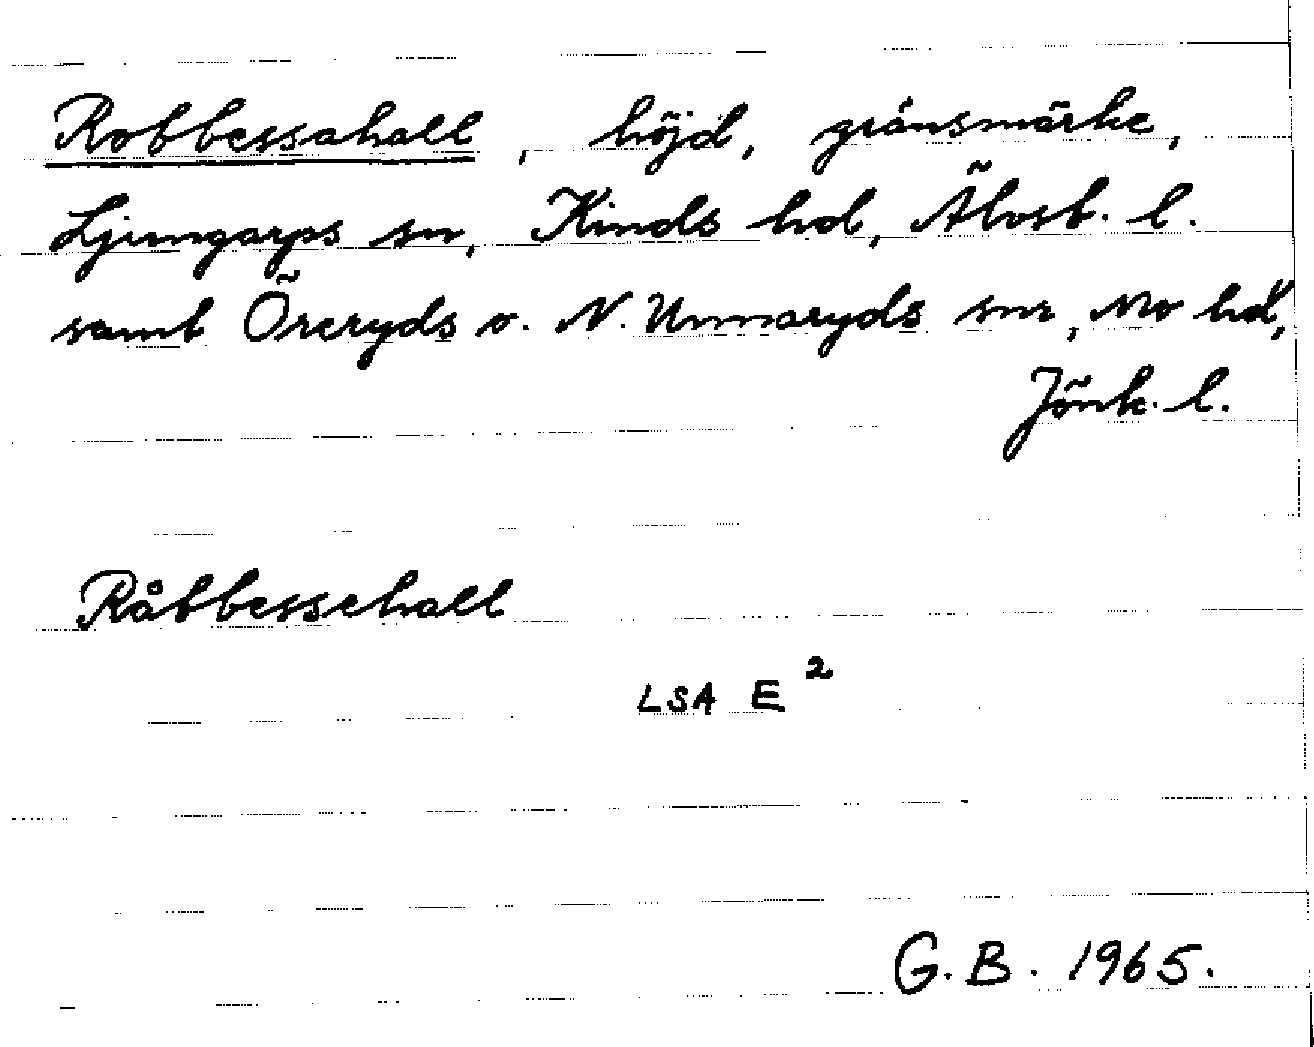 Robbessahall, höjd, gränsmärke,
Ljungarps sn, Kinds hd, Älvsb. l.
samt Öreryds o. N. Unnaryds snr, Mo hd,
Jönk. l.
Råbbessehall
LSA E²
G. B. 1965.